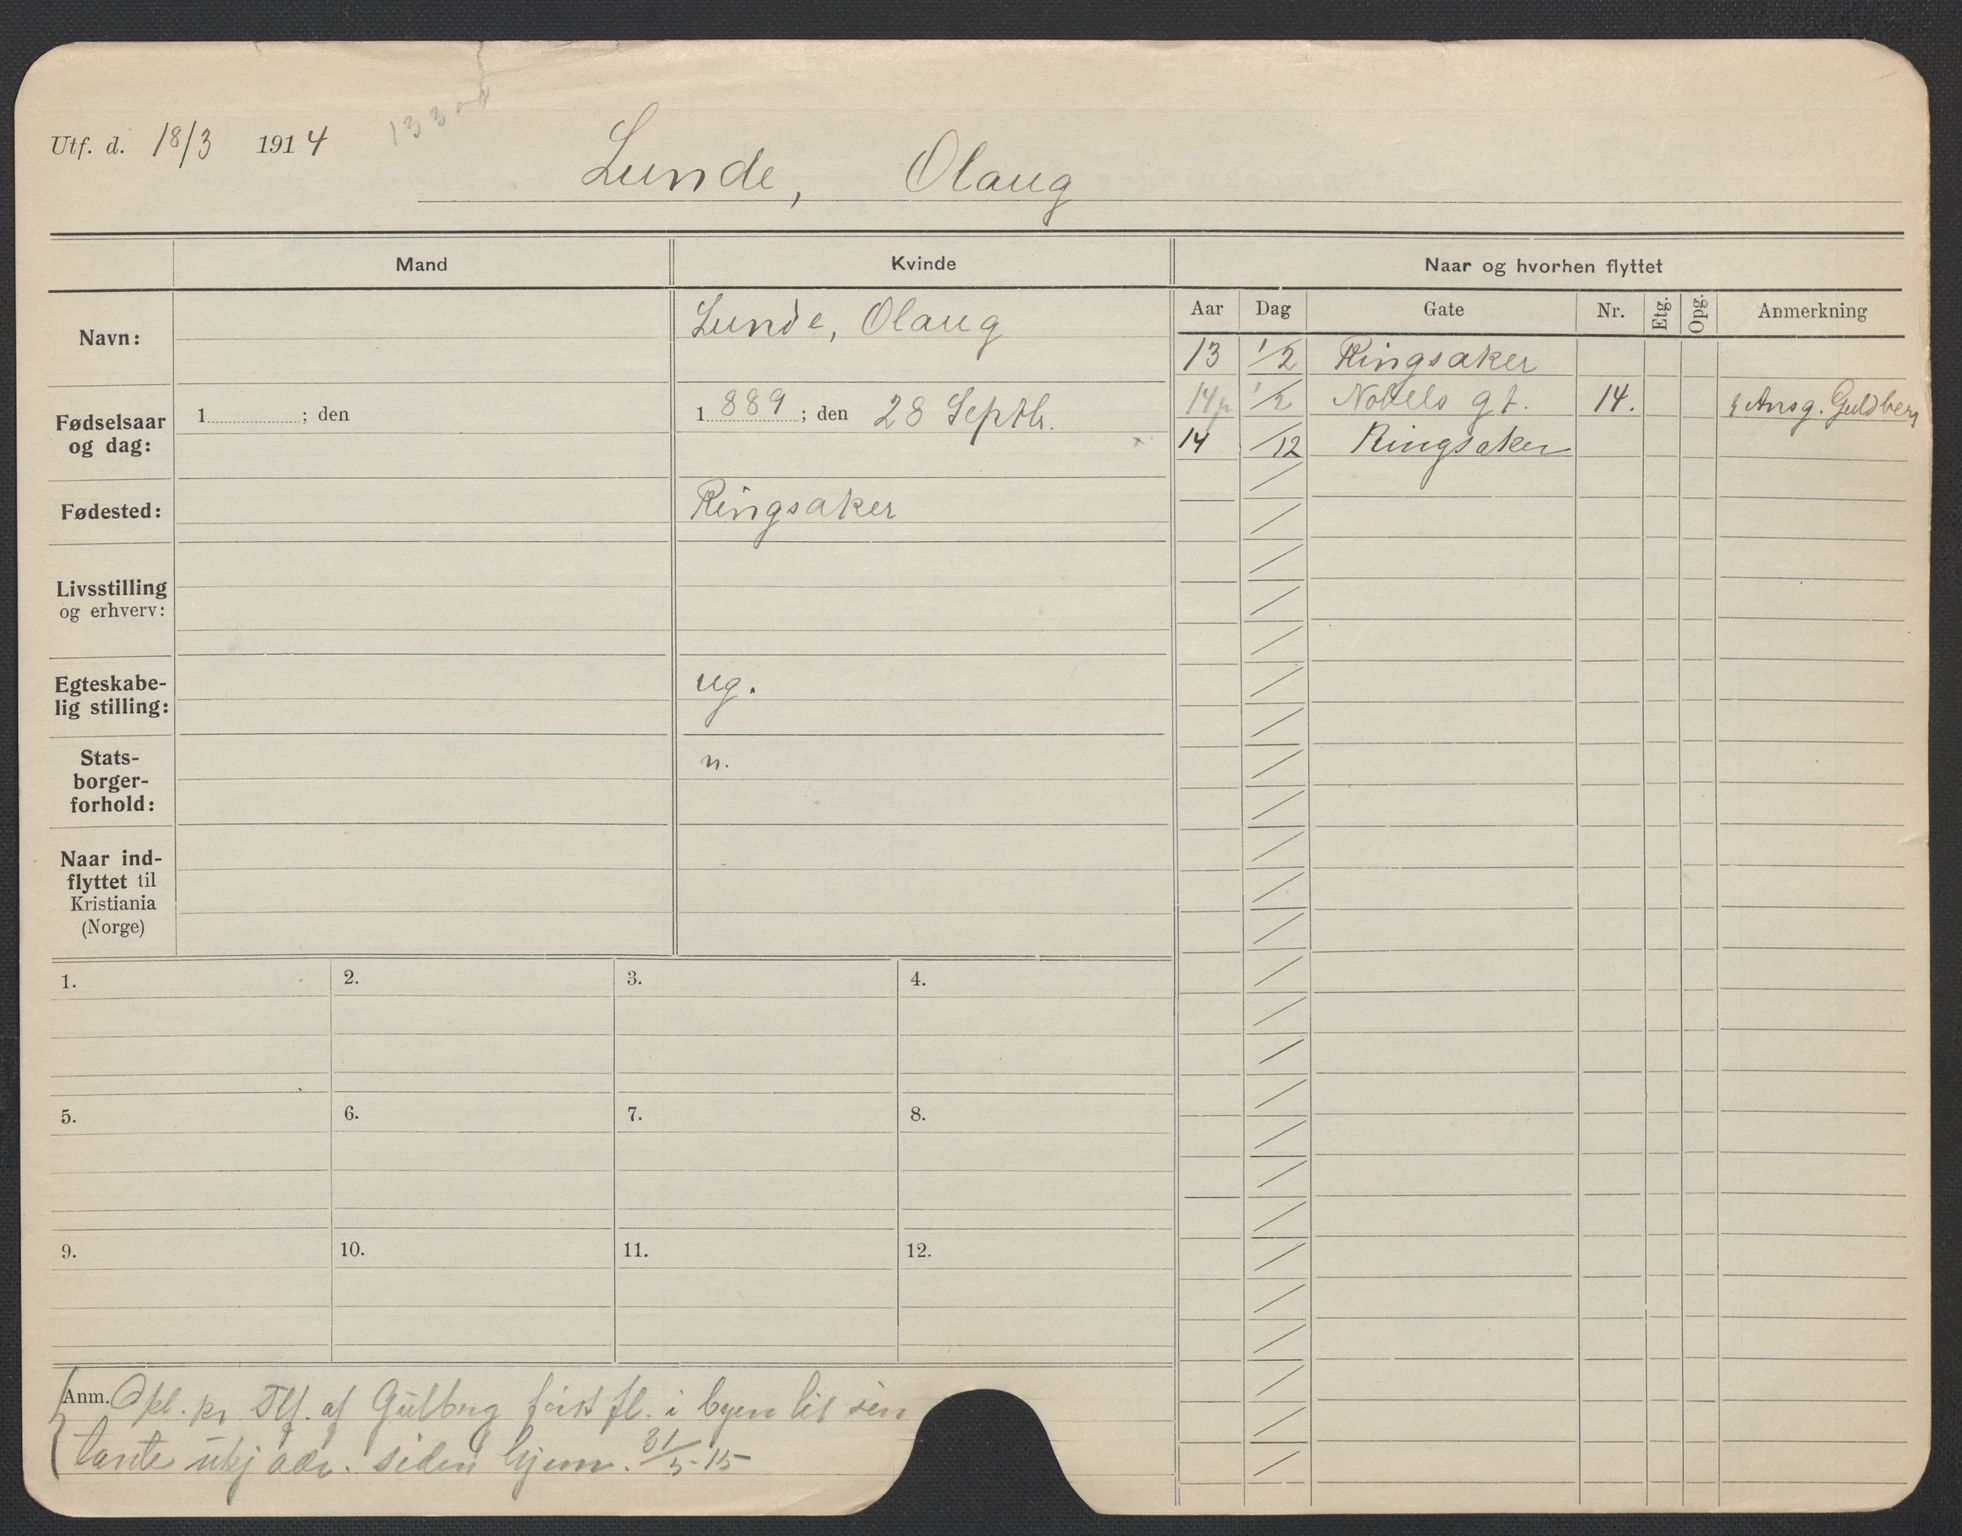 Utf. d. 18/3 1914
Lunde, Olaug
Mand
Kvinde
Naar og hvorhen flyttet
Navn:
Lunde, Olaug
Fødselsaar
og dag:
1 ; den
1 889 ; den 28 Septbr.
Fødested:
Ringsaker
Livsstilling
og erhverv:
Egteskabe-
lig stilling:
ug.
Stats-
borger-
forhold:
n.
Naar ind-
flyttet til
Kristiania
(Norge)
Aar Dag Gate Nr. Etg. Opg. Anmerkning
13 1/2 Ringsaker
14 1/2 Nobels gt. 14. Ansg. Guldberg
14 /12 Ringsaker
1. 2. 3. 4.
5. 6. 7. 8.
9. 10. 11. 12.
Anm. Opl. pr. Tlf. af Gulbrg først fl. i byen til sin
tante ukj adr. siden hjem. 31/5-15